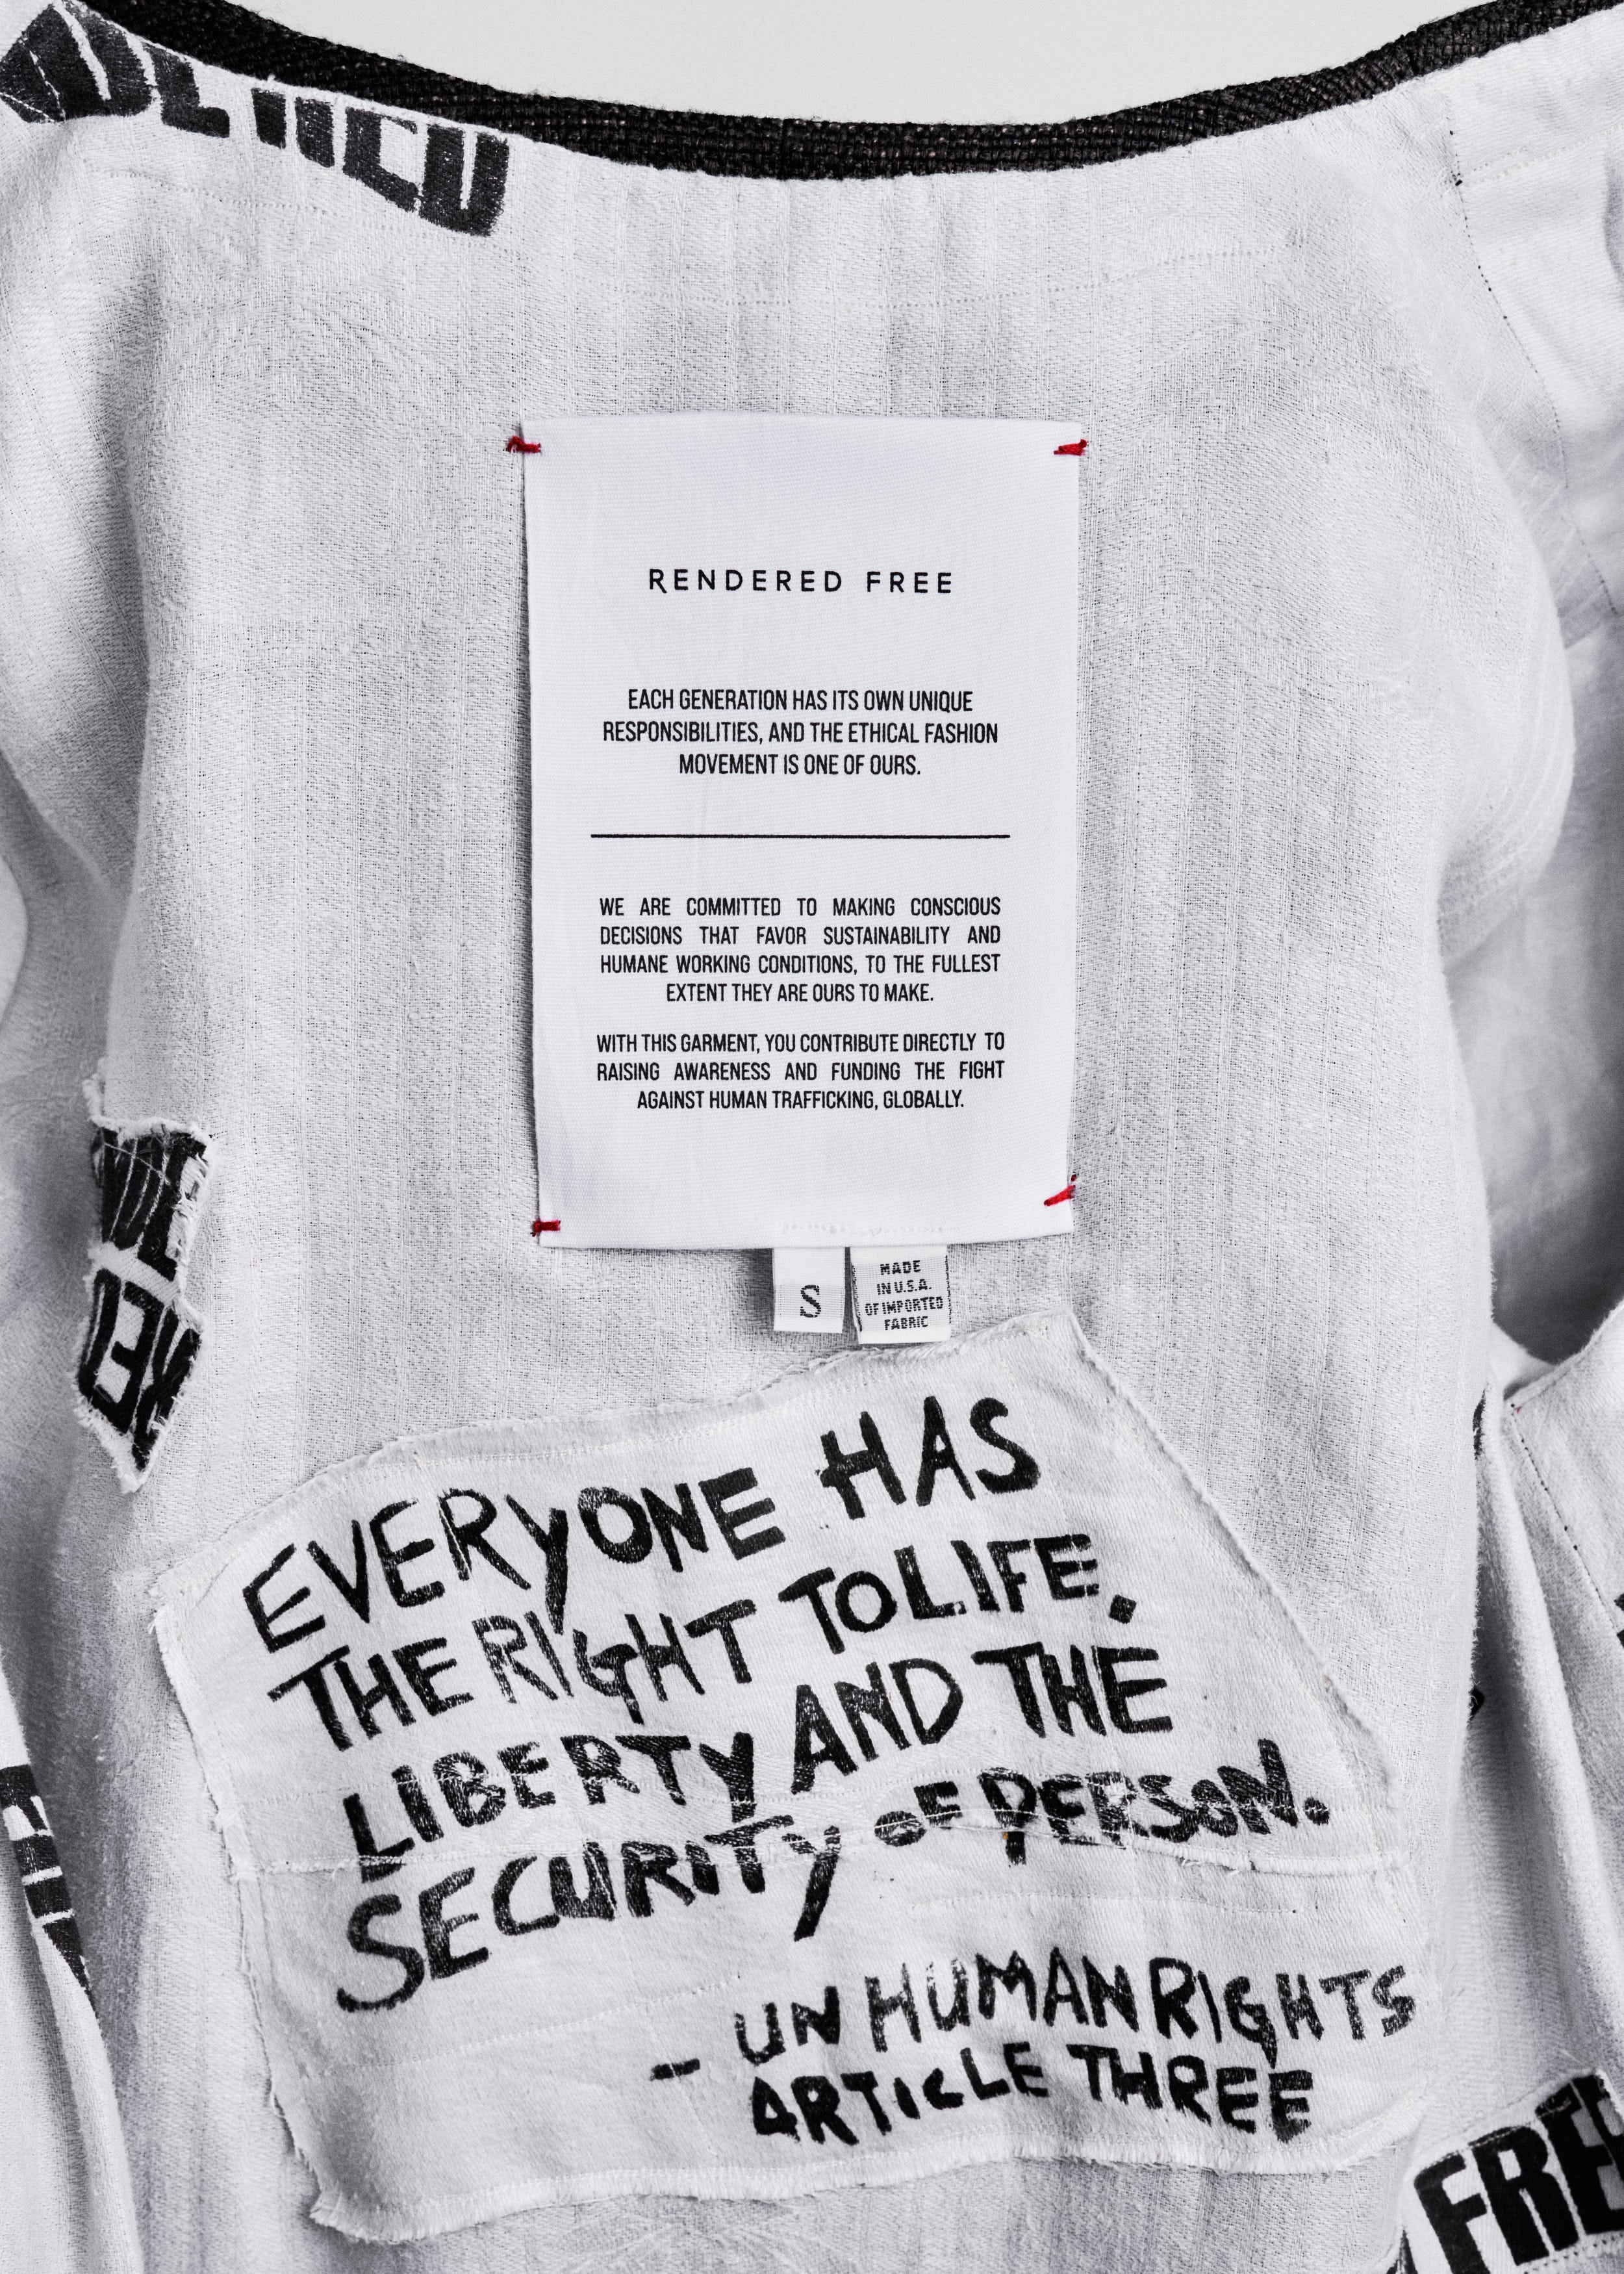 RENDERED FREE
EACH GENERATION HAS ITS OWN UNIQUE
RESPONSIBILITIES, AND THE ETHICAL FASHION
MOVEMENT IS ONE OF OURS.
WE ARE COMMITTED TO MAKING CONSCIOUS
DECISIONS THAT FAVOR SUSTAINABILITY AND
HUMANE WORKING CONDITIONS, TO THE FULLEST
EXTENT THEY ARE OURS TO MAKE.
WITH THIS GARMENT, YOU CONTRIBUTE DIRECTLY TO
RAISING AWARENESS AND FUNDING THE FIGHT
AGAINST HUMAN TRAFFICKING, GLOBALLY.
S
MADE
IN U.S.A.
OF IMPORTED
FABRIC
EVERYONE HAS
THE RIGHT TO LIFE.
LIBERTY AND THE
SECURITY OF PERSON.
- UN HUMAN RIGHTS
ARTICLE THREE
FREE